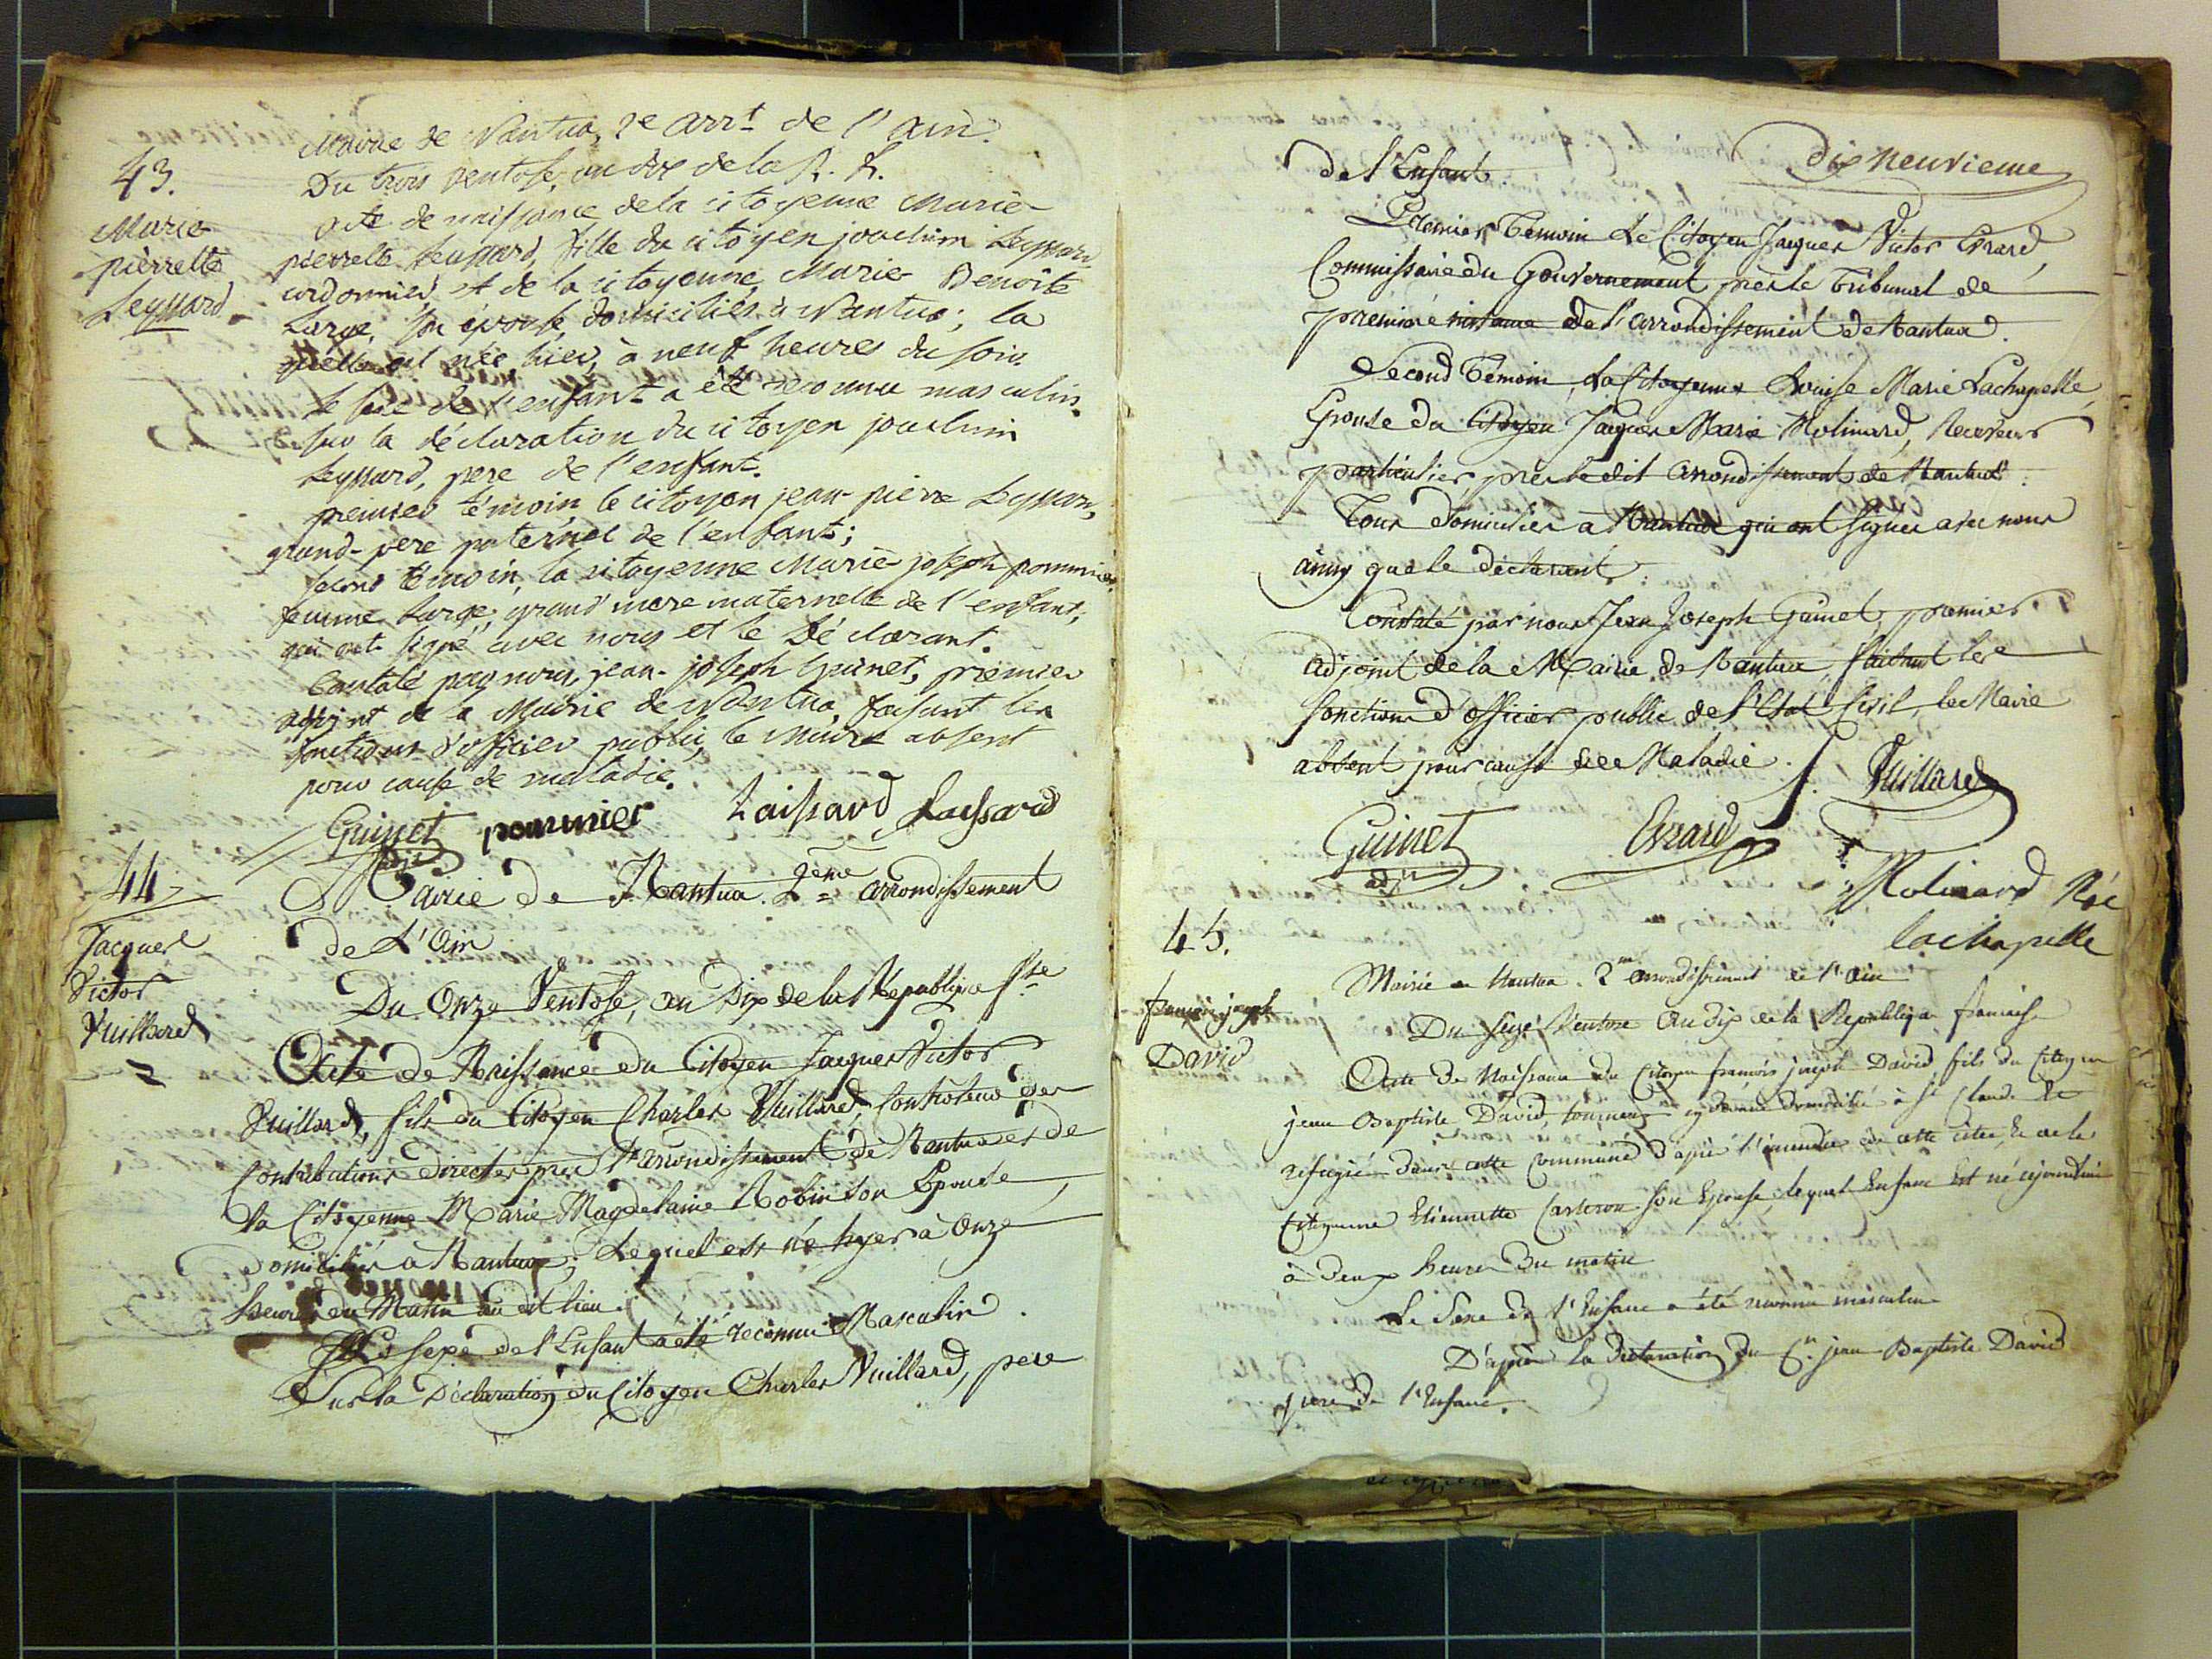 43.
Marie
pierrette
Leyssard
Mairie de Nantua, 2e arrt de l'ain.
Du trois ventose, an dix de la R. f.
acte de naissance de la citoyenne Marie
pierrette Leyssard, fille du citoyen joachim Leyssard
cordonnier et de la citoyenne Marie Benoite
Large, son épouse, domiciliés à Nantua; la
quelle est née hier, à neuf heures du soir.
le sexe de l'enfant a été reconnu masculin.
sur la déclaration du citoyen joachim
Leyssard, pere de l'enfant.
premier témoin le citoyen jean-pierre Leyssard,
grand-pere paternel de l'enfant;
second témoin, la citoyenne Marie-joseph pommier
femme Large, grand'mere maternelle de l'enfant,
qui ont signé avec nous et le Déclarant.
Constaté par nous, jean-joseph Guinet, premier
adjoint de la Mairie de Nantua, faisant les
fonctions d'officier public, le Maire absent
pour cause de maladie.
Guinet pommier Laissard Laissard
adjt
44
Jacques
Victor
Vuillard
Mairie de Nantua. 2eme arrondissement
de L'Ain
Du Onze Ventose, an Dix de la République fse
Acte de Naissance du Citoyen Jacques Victor
Vuillard, fils du Citoyen Charles Vuillard, Controleur des
Contributions directes près l'arrondissement de Nantua et de
la Citoyenne Marie Magdelaine Robin son Epouse,
domiciliés à Nantua; Lequel est né hyer à Onze
heures du Matin au dit lieu.
Le sexe de l'Enfant a été reconnu Masculin.
Sur la Déclaration du Citoyen Charles Vuillard, pere
dix neuvieme
de l'Enfant
Premier Témoin Le Citoyen Jacques Victor Evrard,
Commissaire du Gouvernement près le Tribunal de
premiere instance de l'arrondissement de Nantua.
Second Témoin, La Citoyenne Louise Marie Lachapelle,
Epouse du Citoyen Jacques Marie Molinard, Receveur
particulier, près ledit arrondissement de Nantua.
Tous domiciliés à Nantua qui ont signés avec nous
ainsy que le déclarant.
Constaté par nous Jean Joseph Guinet, premier
adjoint de la Mairie de Nantua, faisant les
fonctions d'officier public de l'Etat Civil, le Maire
absent pour cause de Maladie.
Vuillard
Guinet Evrard
adjt
Molinard Née
lachapelle
45.
françois joseph
David
Mairie de Nantua. 2me arrondissement de l'Ain
Du seize Ventose an dix de la République française
Acte de Naissance du Citoyen françois joseph David, fils du Citoyen
jean Baptiste David, tourneur cy devant domicilié à St Claude et
refugié dans cette Commune d'après l'incendie de cette cité, et de la
Citoyenne Etiennette Carteron son Epouse, lequel Enfant Est né cejourd'hui
à deux heures du matin
Le Sexe de l'Enfant a été reconnu masculin
D'après la declaration du Cn jean Baptiste David
pere de l'Enfant.